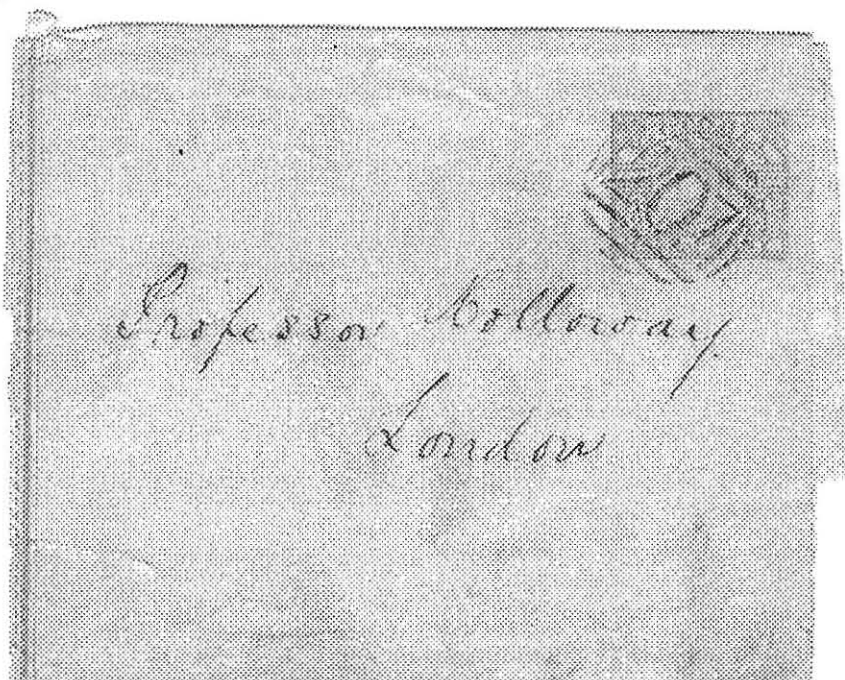 Professor Holloway.
London